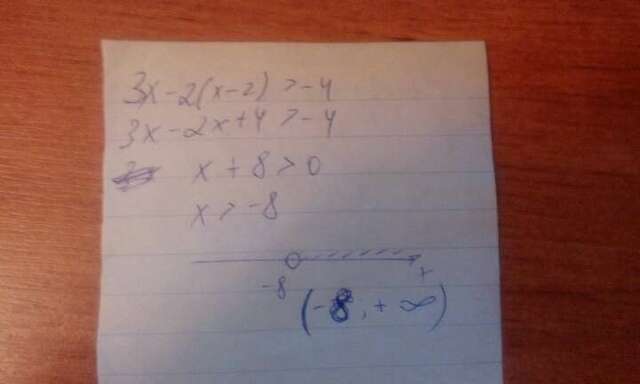 3x-2(x-2)>-4
3x-2x+4>-4
x+8>0
x>-8
-8 x
(-8, +∞)